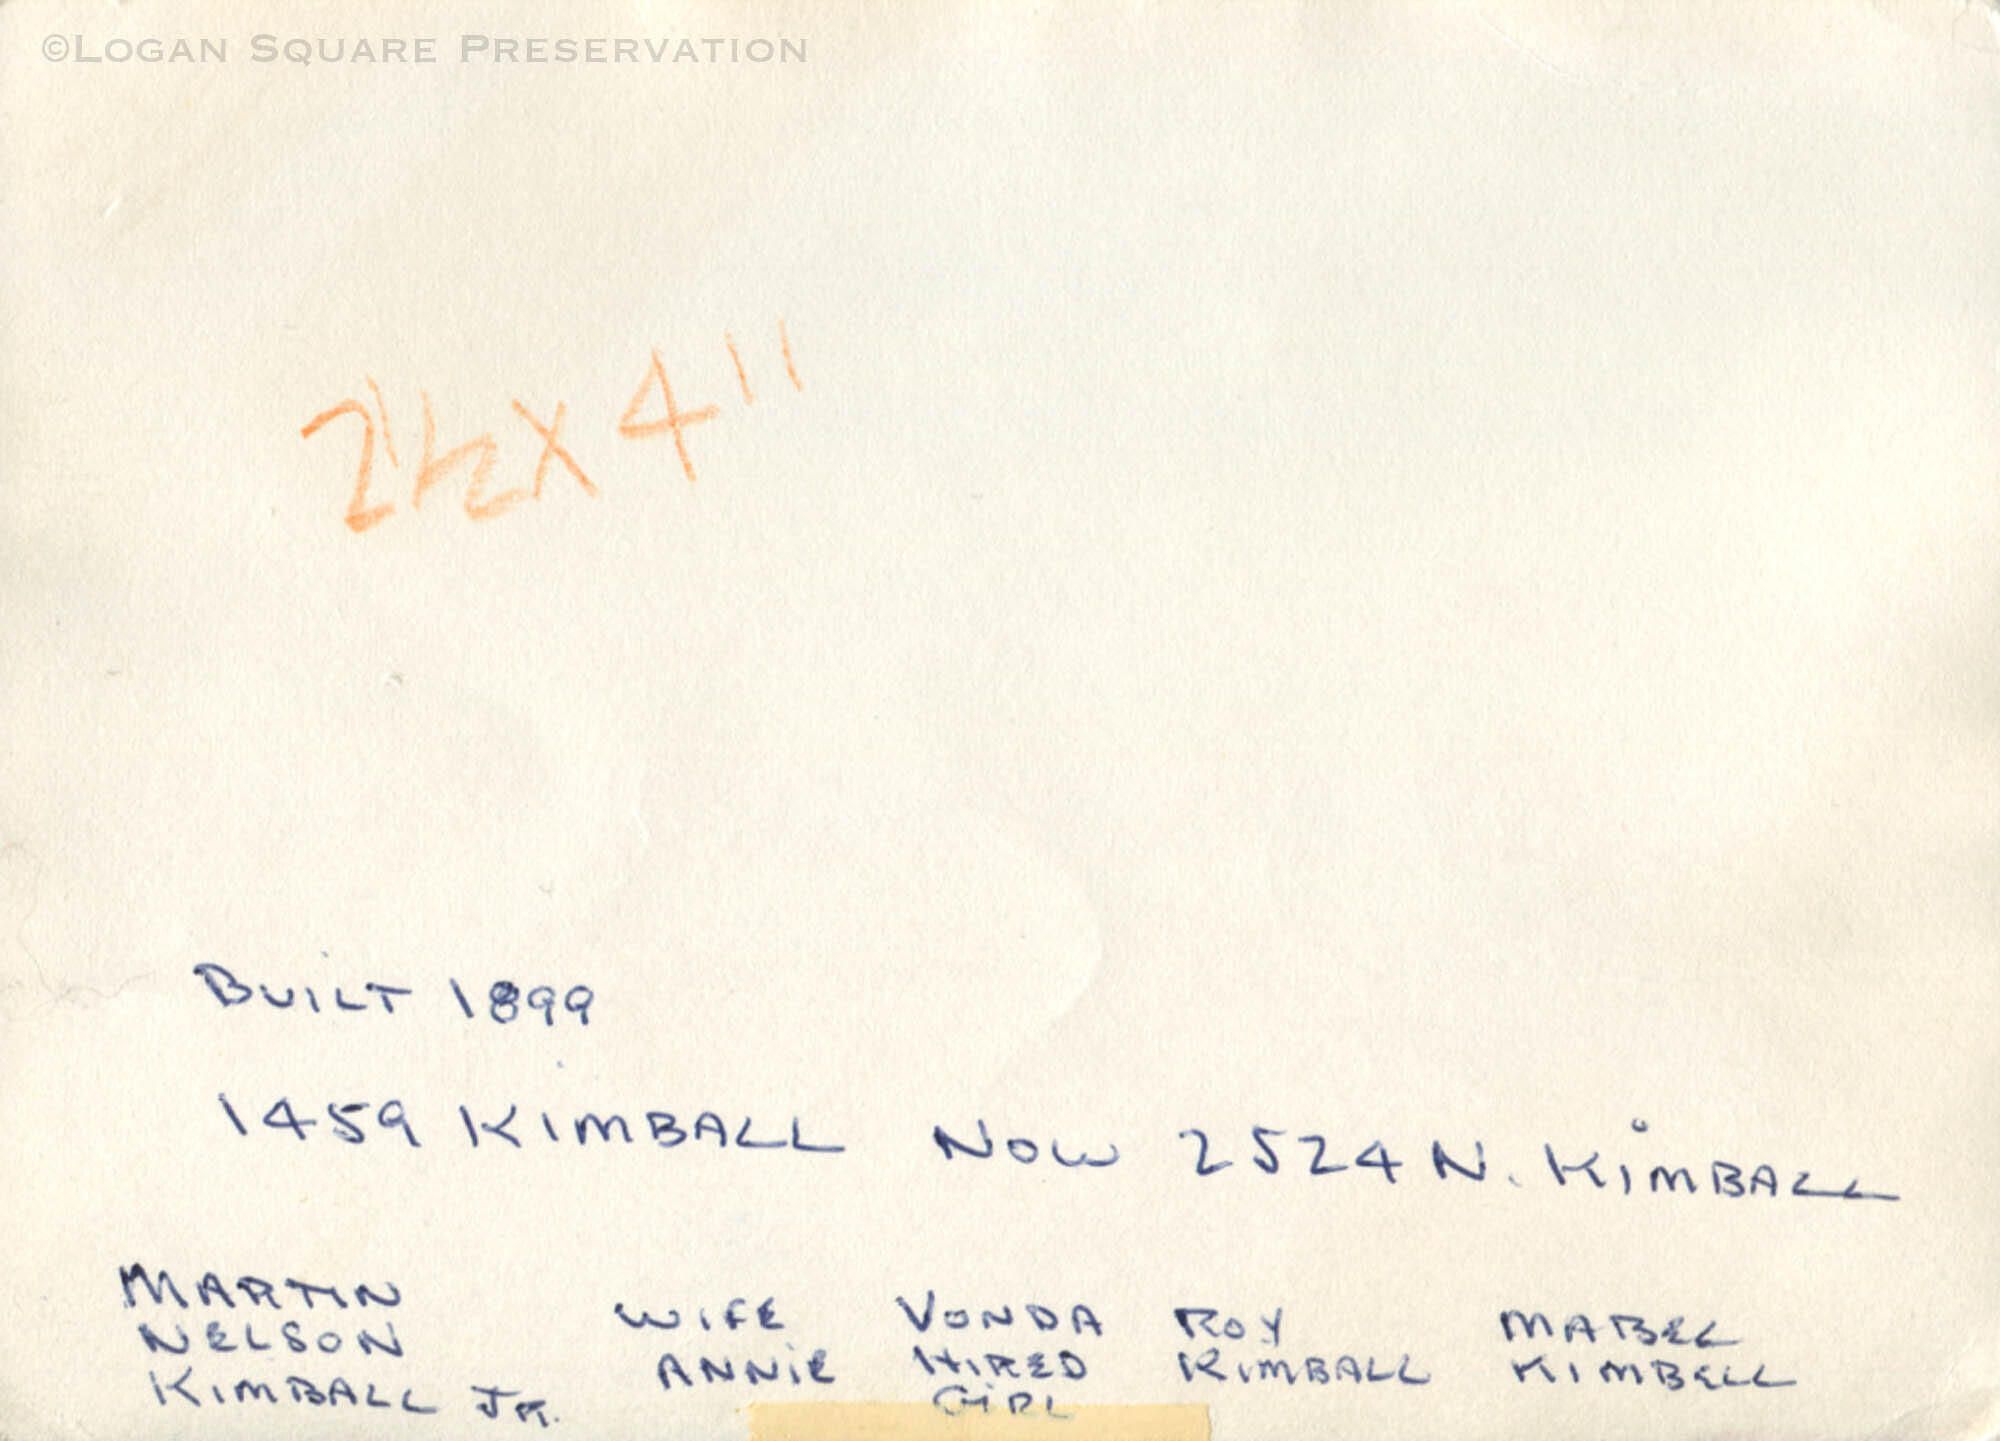 ©Logan Square Preservation
2 1/2 X 4"
BUILT 1899
1459 KIMBALL NOW 2524 N. KIMBALL
MARTIN
NELSON
KIMBALL JR.
WIFE
ANNIE
VONDA
HIRED
GIRL
ROY
KIMBALL
MABEL
KIMBELL